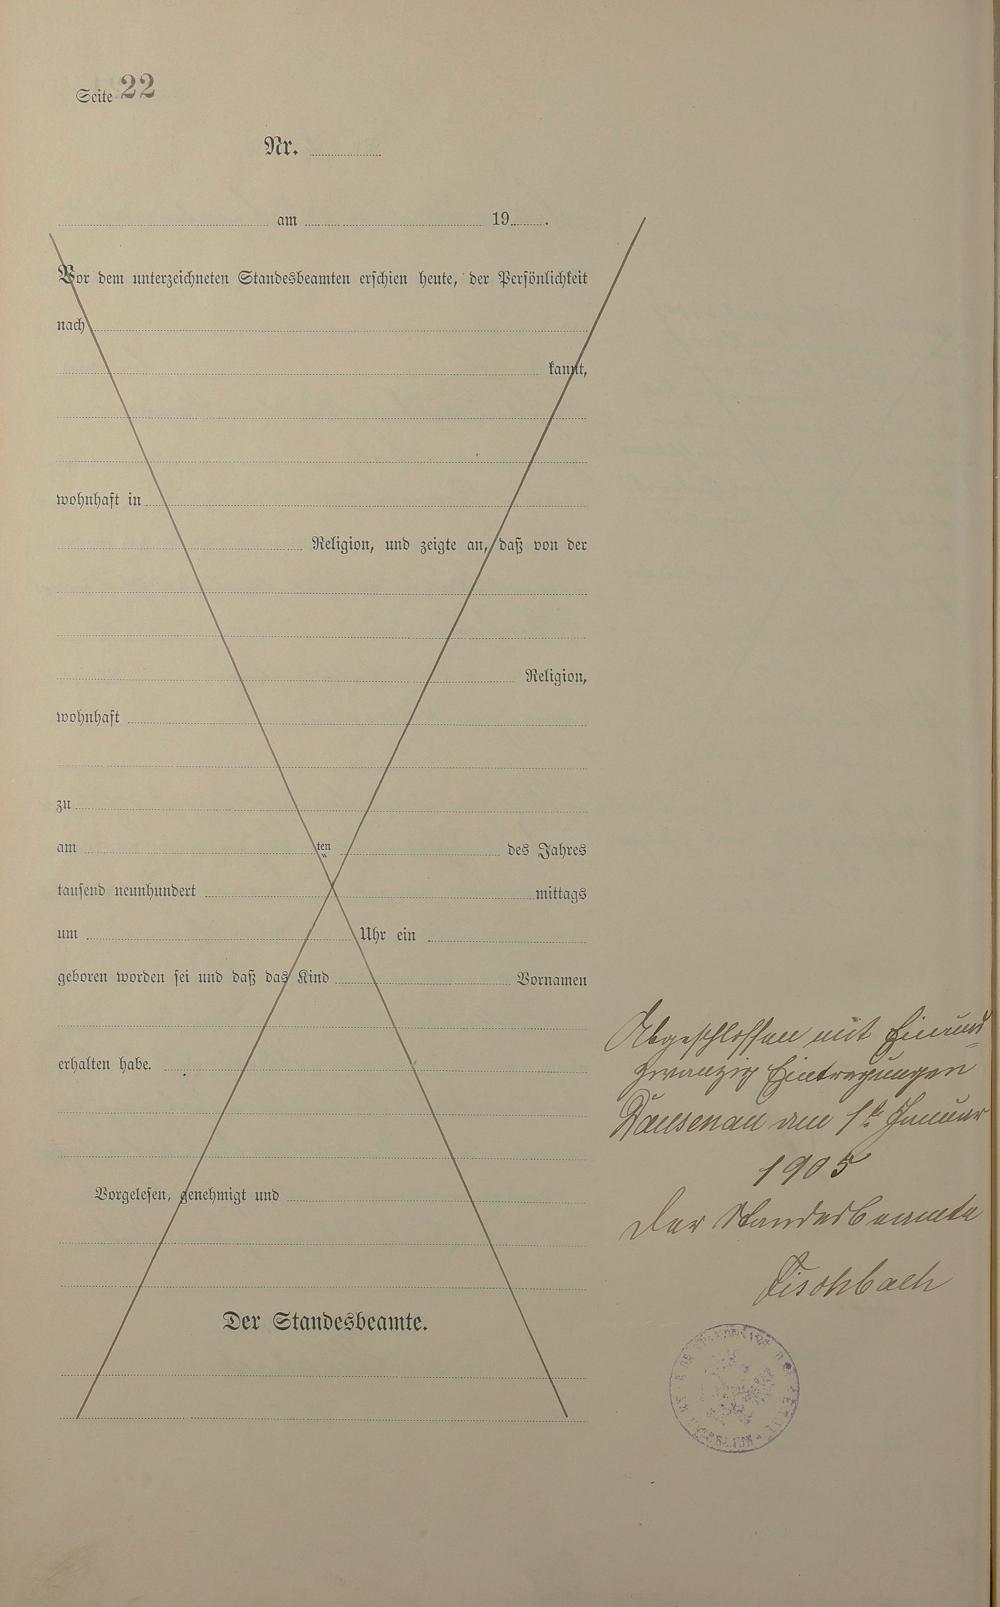 Seite 22
Nr.
am 19 .
Vor dem unterzeichneten Standesbeamten erschien heute, der Persönlichkeit
nach
kannt,
wohnhaft in
Religion, und zeigte an, daß von der
Religion,
wohnhaft
zu
am ten des Jahres
tausend neunhundert mittags
um Uhr ein
geboren worden sei und daß das Kind Vornamen
erhalten habe.
Vorgelesen, genehmigt und
Der Standesbeamte.
Abgeschlossen mit Einund=
zwanzig Eintragungen
Dausenau am 1ten Januar
1905
Der Standesbeamte
Fischbach